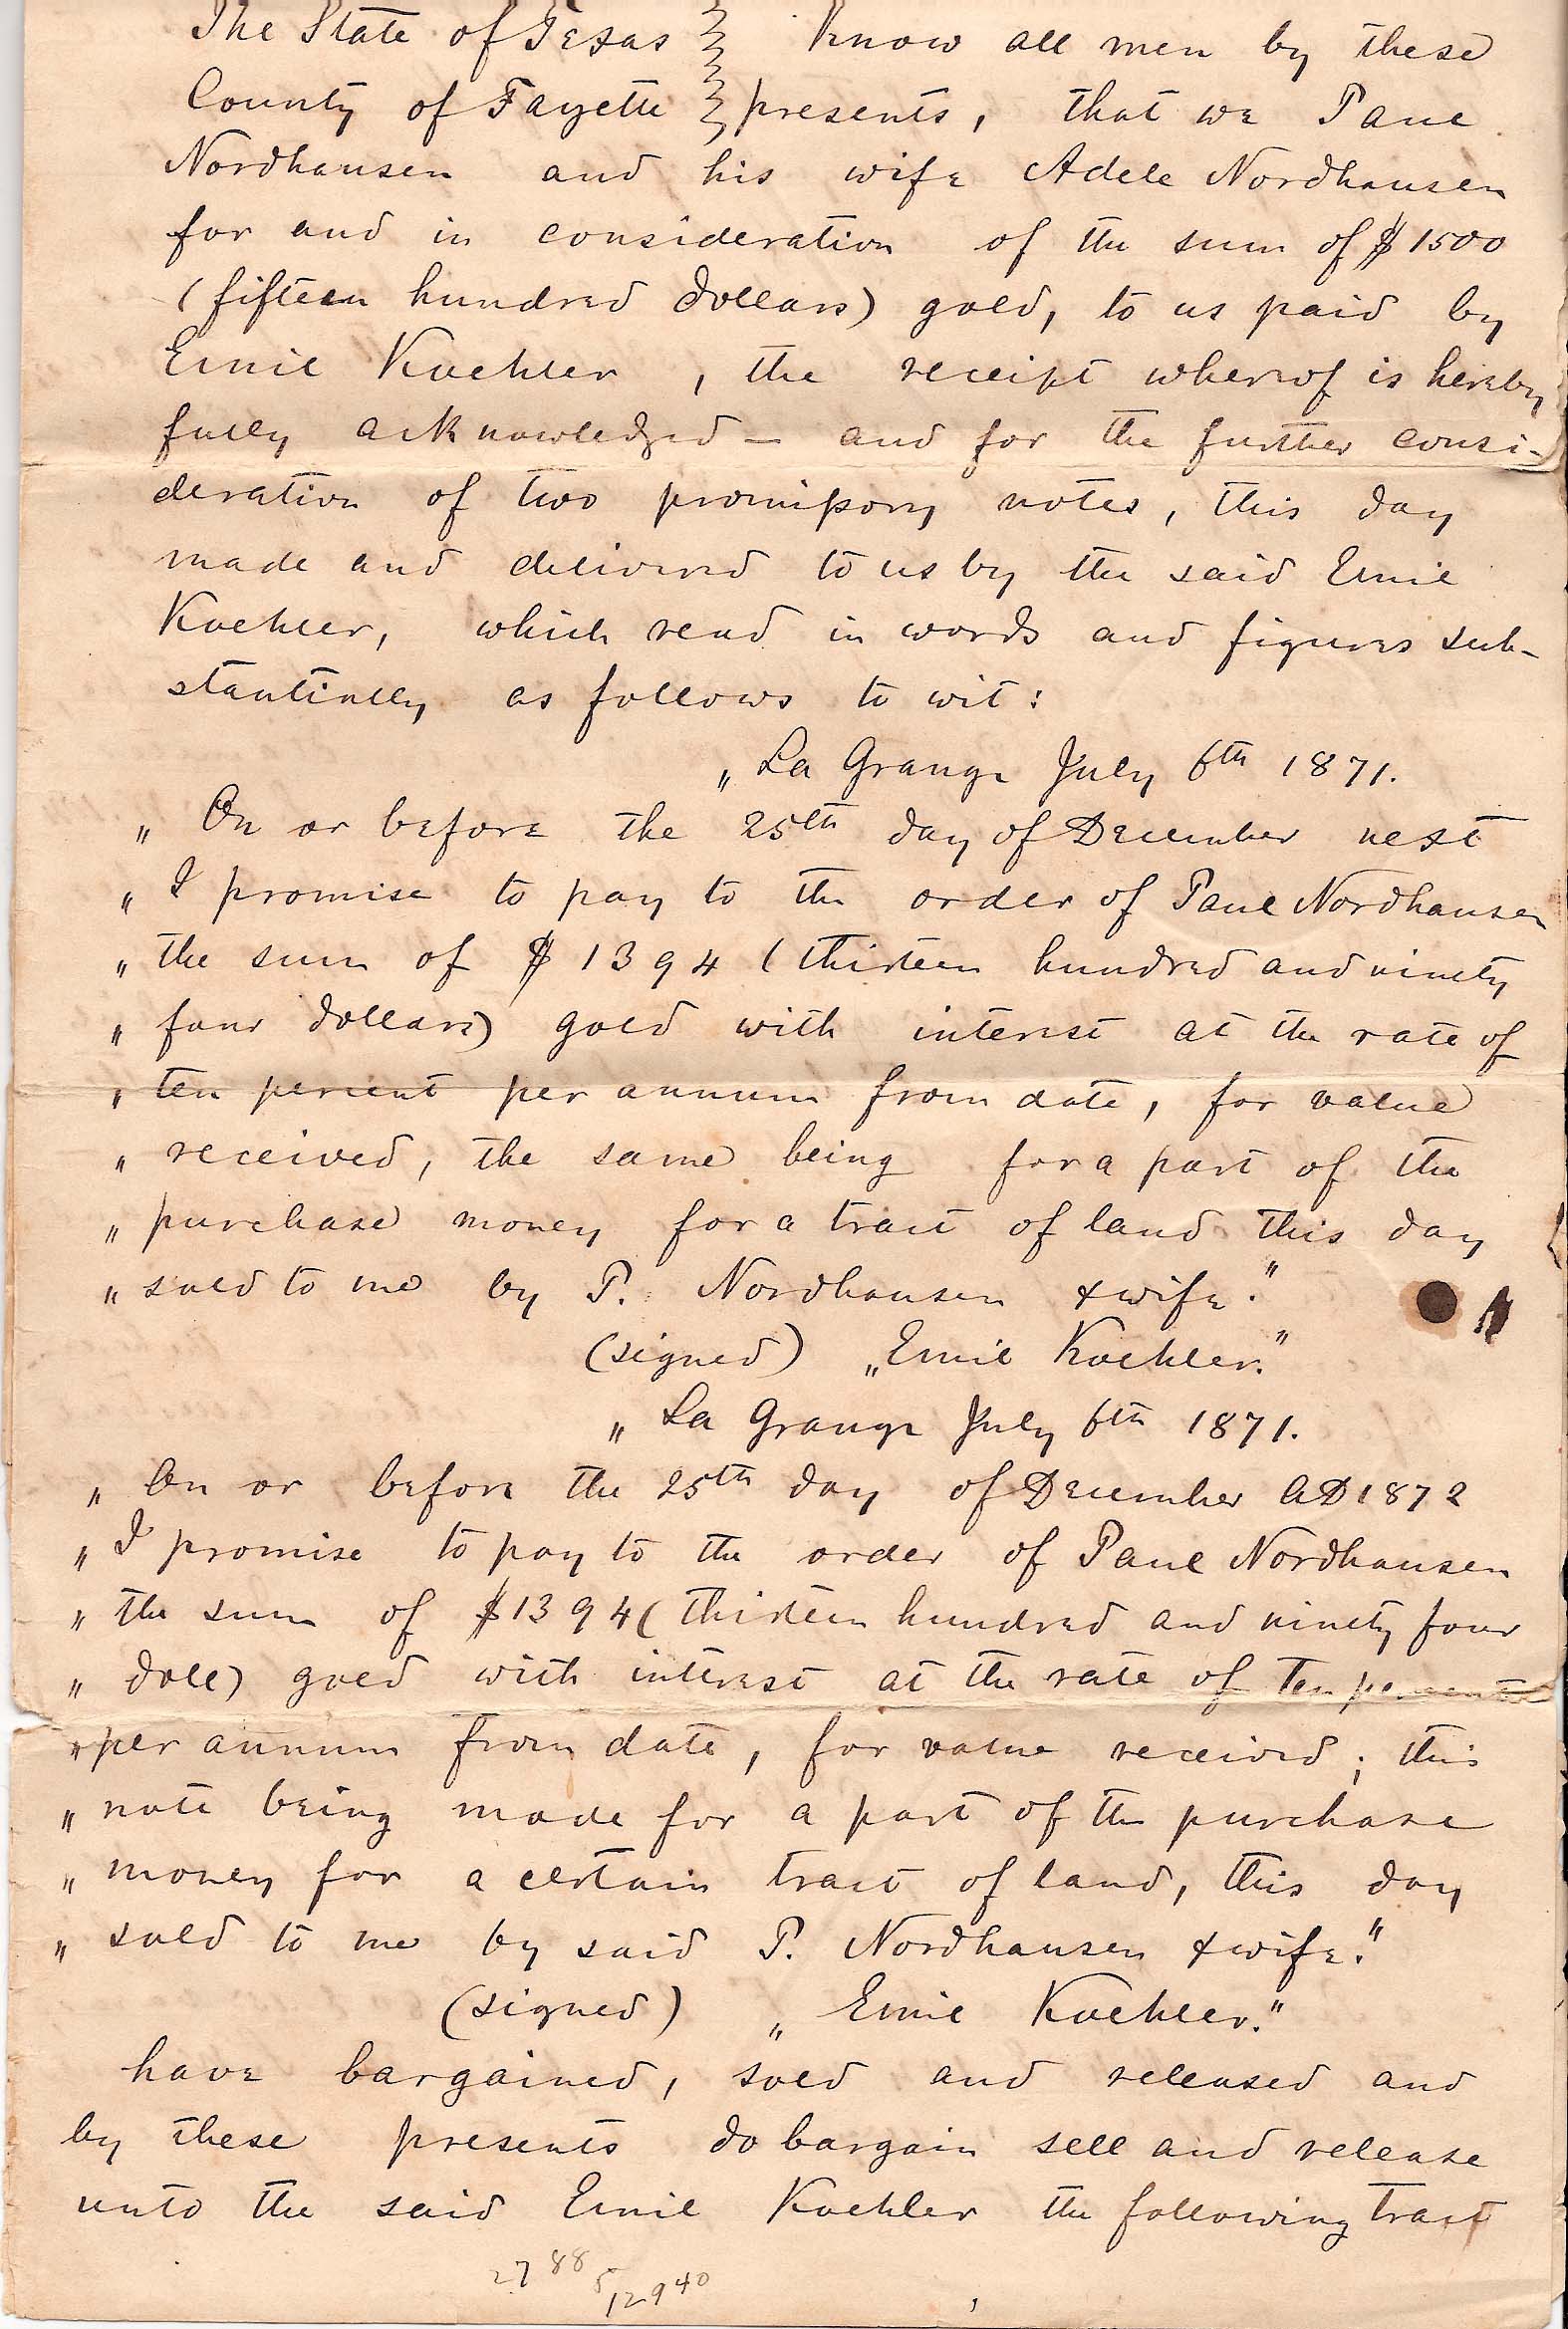 The State of Texas } Know all men by these
County of Fayette } presents, that we Paul
Nordhausen and his wife Adele Nordhausen
for and in consideration of the sum of $1500
(fifteen hundred dollars) gold, to us paid by
Emil Koehler , the receipt whereof is hereby
fully acknowledged — and for the further consi-
deration of two promissory notes, this day
made and delivered to us by the said Emil
Koehler, which read in words and figures sub-
stantially as follows to wit:
„ La Grange July 6th 1871.
„ On or before the 25th day of December next
„ I promise to pay to the order of Paul Nordhausen
„ the sum of $1394 (thirteen hundred and ninety
„ four dollars) gold with interest at the rate of
„ ten percent per annum from date, for value
„ received, the same being for a part of the
„ purchase money for a tract of land this day
„ sold to me by P. Nordhausen & wife."
(signed) „Emil Koehler."
„ La Grange July 6th 1871.
„ On or before the 25th day of December AD 1872
„ I promise to pay to the order of Paul Nordhausen
„ the sum of $1394 (thirteen hundred and ninety four
„ doll) gold with interest at the rate of Ten percent
„ per annum from date, for value received; this
„ note being made for a part of the purchase
„ money for a certain tract of land, this day
„ sold to me by said P. Nordhausen & wife."
(signed) „ Emil Koehler."
have bargained, sold and released and
by these presents do bargain sell and release
unto the said Emil Koehler the following tract
27 88